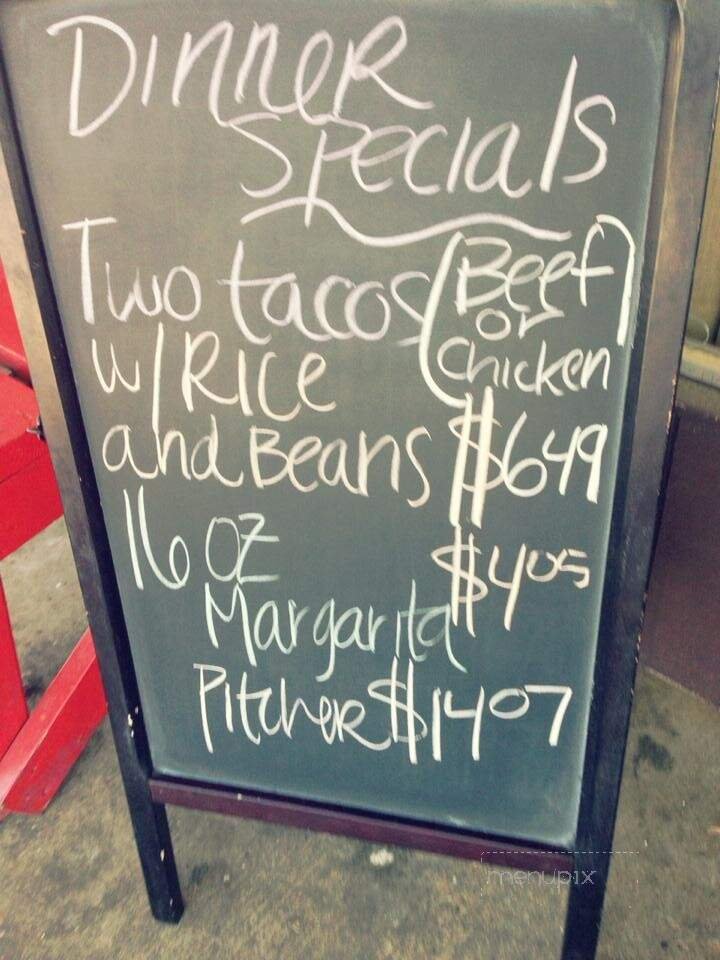 Dinner
Specials
Two tacos (Beef)
or
w/Rice (Chicken
and Beans $649
16 oz $405
Margarita
Pitcher $1407
menupix